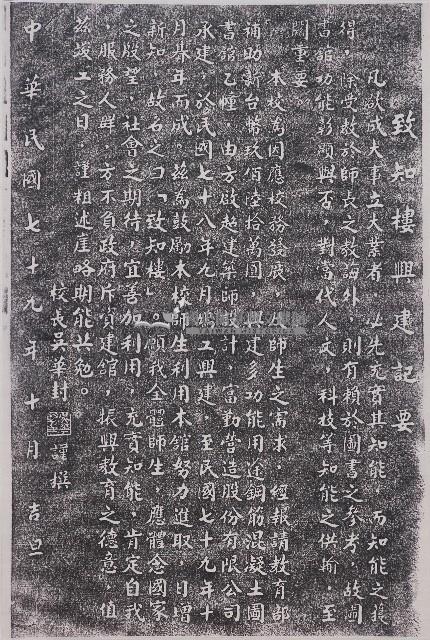 致知樓興建記要
凡欲成大事立大業者，必先充實其知能，而知能之獲
得，除受教於師長之教誨外，則有賴於圖書之參考，故圖
書舘功能彰顯與否，對當代人文，科技等知能之供輸，至
關重要。
本校為因應校務發展，及師生之需求，經報請教育部
補助新台幣玖佰陸拾萬圓，興建多功能用途鋼筋混凝土圖
書舘乙幢，由方啟超建築師設計，富勤營造股份有限公司
承建，於民國七十八年九月鳩工興建，至民國七十九年十
月畧年而成。茲為鼓勵本校師生利用本舘努力進取，日增
新知，故名之曰「致知樓」。願我全體師生，應體念國家
之殷望，社會之期待，宜善加利用，充實知能，肯定自我
，服務人群，方不負政府斥資建舘，振興教育之德意，值
茲竣工之日，謹粗述崖略期能共勉。
校長吳華封 謹撰
中華民國七十九年十月吉旦